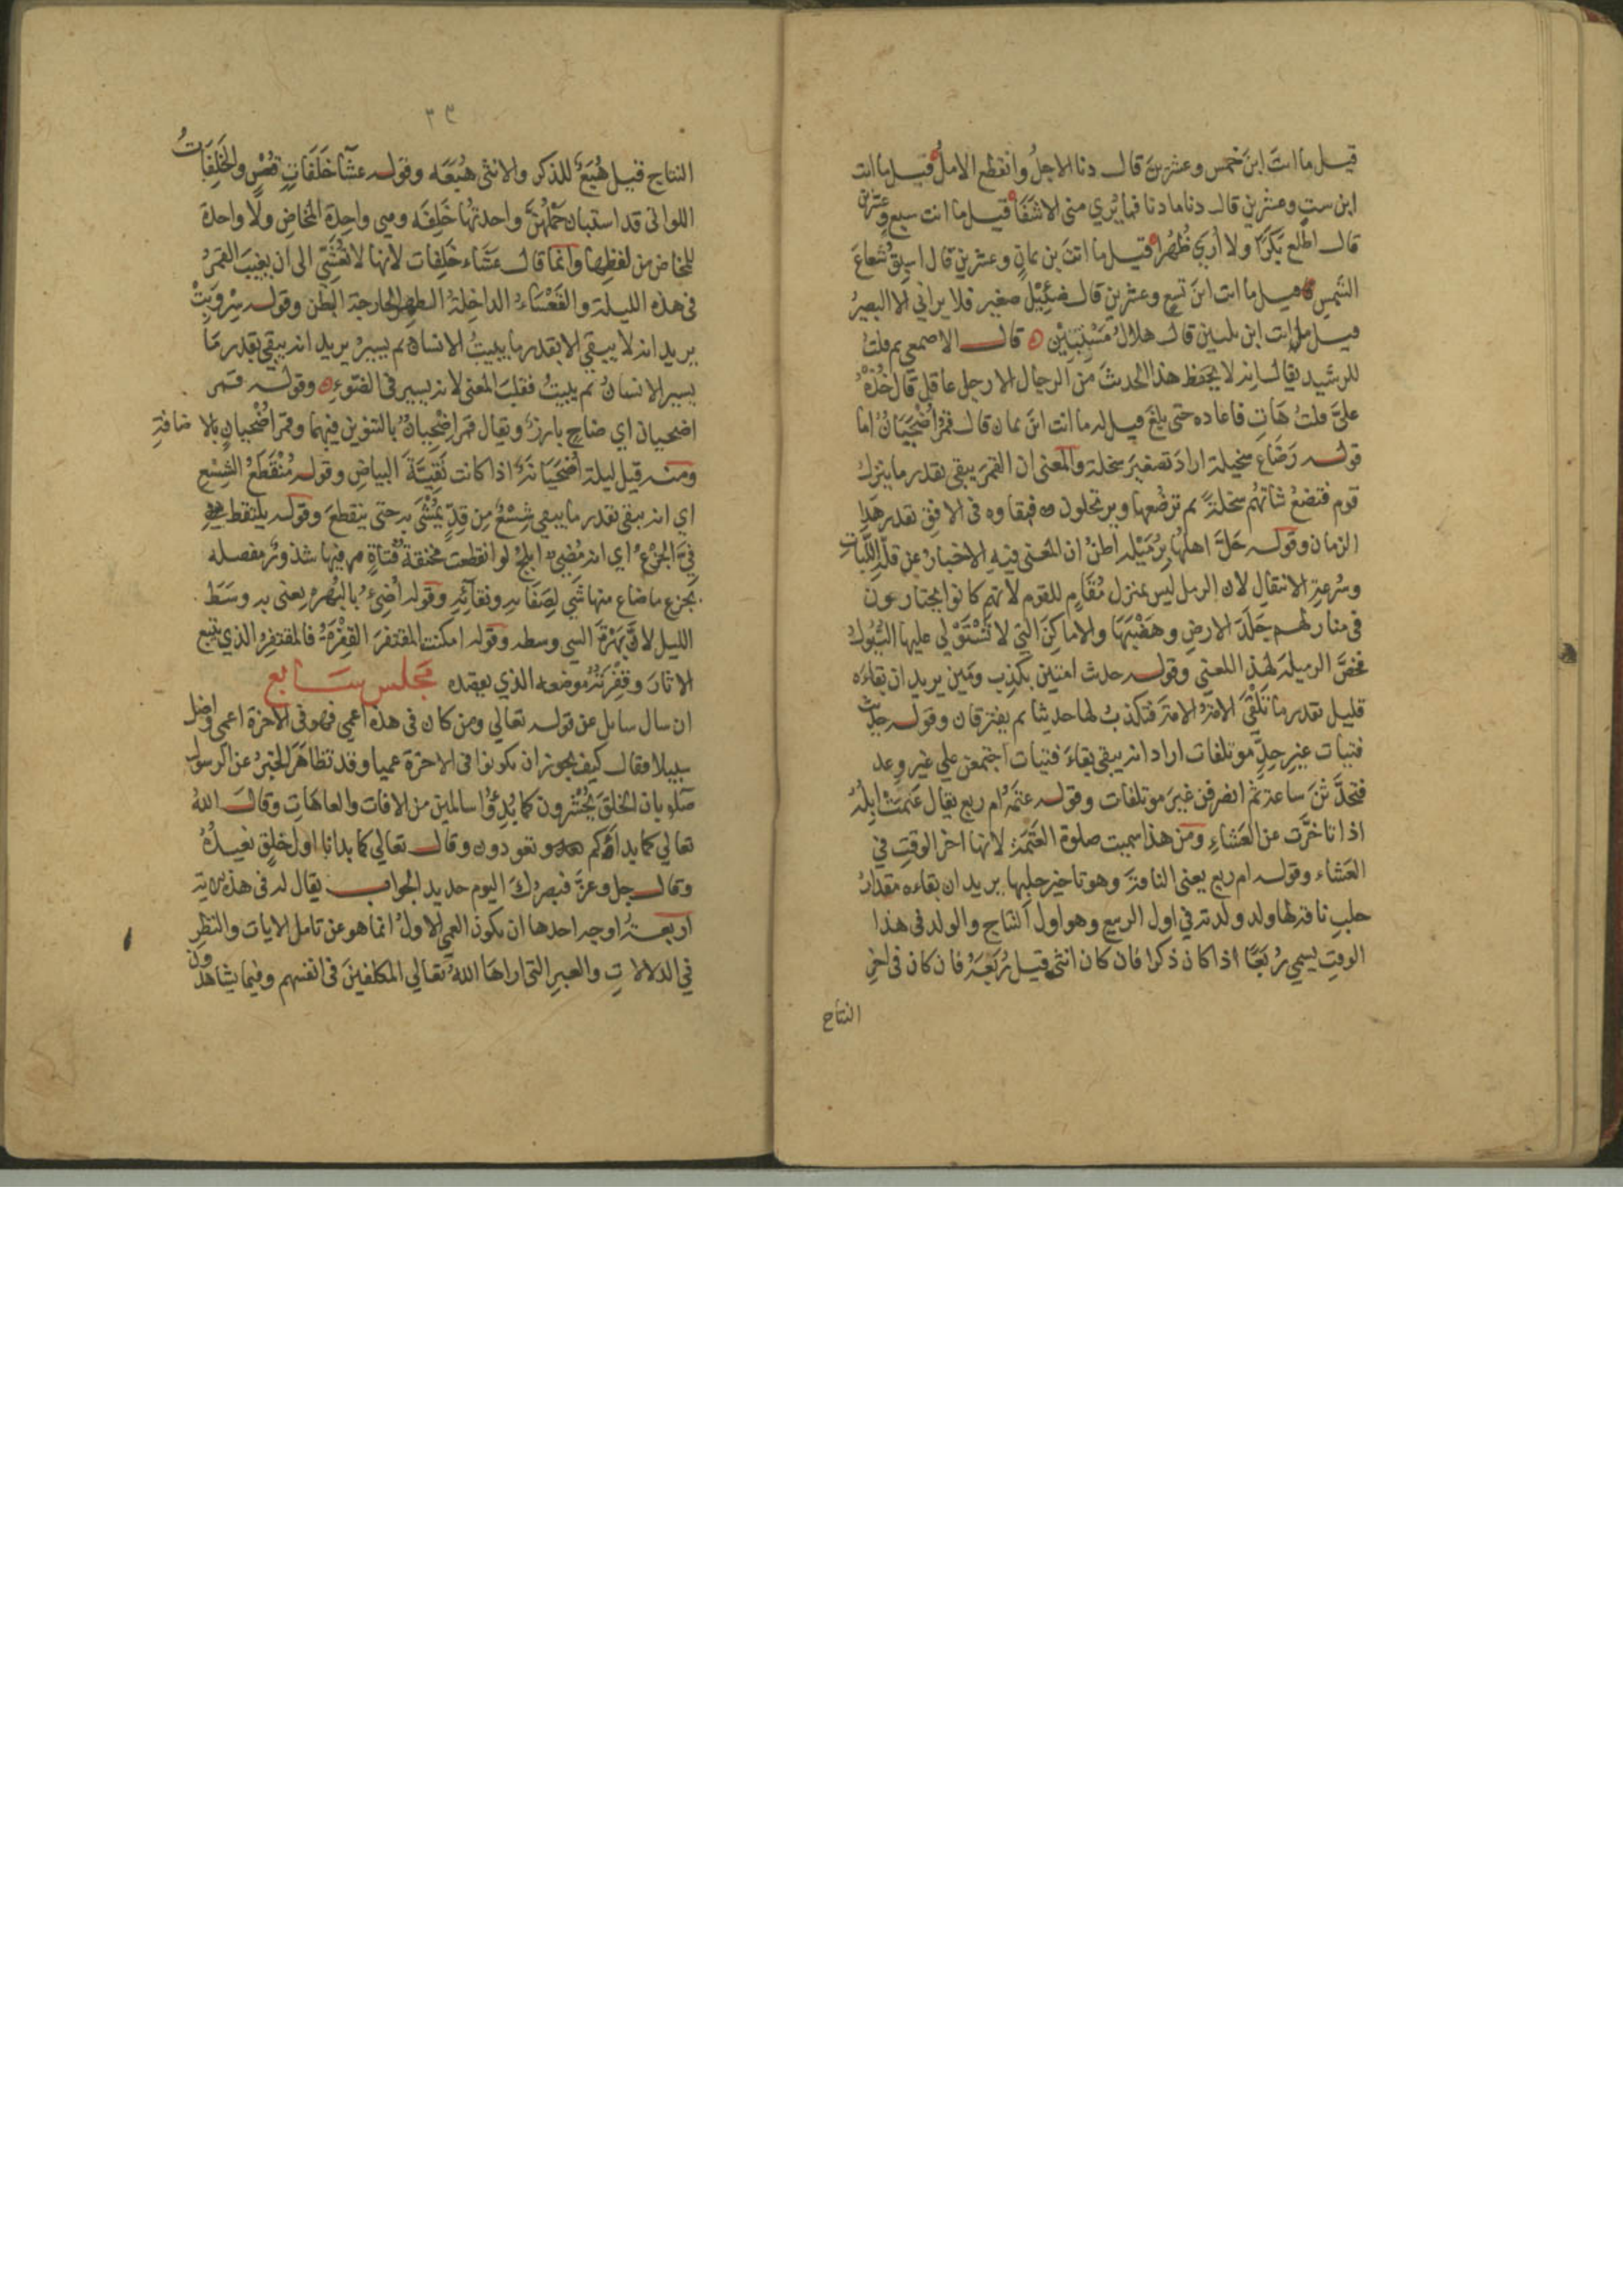 قيل ما انتَ ابنَ خمس وعشرين قال دنا الاجلُ وانقطع الاملُ قيل ما انت
ابن ستٍ وعشرين قال دنا ما دنا فما يُري مني الا شَفَا قيل ما انت سبع وعشرين
قال اطلع بَكَرًا ولا أُرَي ظُهْرا قيل ما انت بن ثمانٍ وعشرين قال اسبِقُ شعاعَ
الشمسِ قيل ما انت ابنَ تسعٍ وعشرين قال ضَئِيْلٌ صغير فلا يراني الا البصيرُ
قيل ما انت ابن ثلثين قال هلالٌ مُسْتَبِيْن قال الاصمعي ثم قلتُ
للرشيد يقال انه لا يحفظ هذا الحديثَ من الرجال الا رجل عاقل قال خُذْهُ
عليَّ قلتُ هَاتِ فاعاده حتى بلغَ قيل له ما انت ابنَ ثمان قال قمرٌ أُضْحِيَانٌ اما
قوله رَضَاع سخيلة ارادَ تصغيرَ سخلة والمعنى ان القمرَ يبقى بقدر ما ينزلُ
قوم فتضعُ شاتُهُم سخلةً ثم ترضُعها ويرتحلون فبقاوه في الافق بقدر هَذا
الزمان وقوله حَلَّ اهلُها بِرُمَيْلَه اظنُّ ان المعنى فيه الاخبارُ عن قلّة اللَّبَاثِ
وسُرعةِ الانتقال لان الرمل ليس بمنزل مُقَامٍ للقوم لانهم كانوا يختارون
في منازلهم جَلَدَ الارضِ وهَضْبَهَا والاماكنَ التي لا تَسْتَوْلي عليها السُّيُولُ
فخصَّ الرميلة لهذ المعني وقوله حديث امتين بكَذِبٍ ومَين يريد ان بقاءَه
قليل بقدر ما تَلْقَى الامَةُ الامَةَ فتكذبُ لها حديثا ثم يفترقان وقوله حديثُ
فتيات غيرِ جِدٍّ موتلفات اراد انه يبقى بقاءَ فتيات اجتمعن علي غير وعد
فتحدَّثْنَ ساعة ثم انصرفن غيرَ موتلفات وقوله عتمةُ ام ربع يقال عتمتْ ابِلُهُ
اذا تاخرَّت عن العَشاءِ ومن هذا سميت صلوة العَتَمَة لانها اخر الوقتِ في
العَشاء وقوله ام ربع يعنى الناقةَ وهو تاخير حلبها يريد ان بقاءه مقدارُ
حلب ناقة لها ولد ولدته في اول الربيع وهو اول النتاج والولد في هذا
الوقتِ يسمي رُبَعًا اذا كان ذكرا فان كان انثى قيل رُبَعَةُ فان كان في اخرِ
النتاج
٣٩
النتاج قيل هُبَعٌ للذكر والانثى هُبَعَه وقوله عشَآ خَلِفَاتٍ قُعْسٍ والخَلِفَاتُ
اللواتى قد استبان حَمْلُهُنَّ واحدتُها خَلِفَه وهي واحدة المخاضِ ولا واحدة
للمخاض من لفظِها وانما قال عَشَاء خَلِفات لانها لا تَعْشَّى الى ان يغيبَ القمرُ
في هذه الليلة والقَعْسَاءُ الداخلةُ الظهر الخارجة البَطْن وقوله سِرْ وَبِتْ
يريد انه لا يبقي الا بقدر ما يبيتُ الانسان ثم يسيرُ يريد انه يبقي بقدر مَا
يسير الانسانُ ثم يبيتُ فقلبَ المعنى لانه يسير في الضَّوءِ وقوله قمر
اضحيان اي ضاحٍ بارزٌ ويقال قمر اضْحِيانٌ بالتنوين فيهما وقمرُ اضْحِيانٍ بالاضافةِ
ومنه قيل ليلة اضحَيَانَةٌ اذا كانت نَقِيَّةَ البياضِ وقوله مُنْقَطَعُ الشِّسْعِ
اي انه يبقى بقدر ما يبقى شِسْعٌ مِن قِدٍّ يُمْشَى به حتى ينقطعَ وقوله يلتقط
فِيَّ الجَزْعُ اي انه مُضيءٌ ابلجُ لو انقطعت مخنقةُ فتاةٍ فيها شذورٌ مفصله
بجزع ما ضاع منها شَي لِصَفَايهِ ونقآئه وقوله أُضِيءُ بالبُهْرَةِ يعنى به وسَطَ
الليل لان بُهْرَةَ الشي وسطه وقوله امكنت المقتفرَ القِفْرَةُ فالمقتفرُ الذي يتبع
الاثارَ وقِفْرَتُهُ موضعه الذي يقصده مَجلس سَابع
ان سال سايل عن قوله تعالي ومن كان في هذه اعمي فهو في الاخرة اعمى واضل
سبيلا فقال كيف يجوز ان يكونوا في الاخرة عميا وقد تظاهَرَ الخبرُ عن الرسول
صلو بان الخلقَ يُحْشَرون كما بُدِؤُا سالمين من الافات والعاهَاتِ وقالَ اللهُ
تعالي كما بداكم تعودون وقال تعالي كما بدانا اول خلق نعيدُهُ
وقال جل وعزَّ فبصرُكَ اليوم حديد الجواب يقال له في هذه الاية
اربعةُ اوجه احدها ان يكونَ العمي الاولُ انما هو عن تامل الايات والنظرِ
في الدلالاتِ والعبرِ التي اراهَا اللهُ تعالي المكلفينَ في انفسهم وفيما يشاهدون